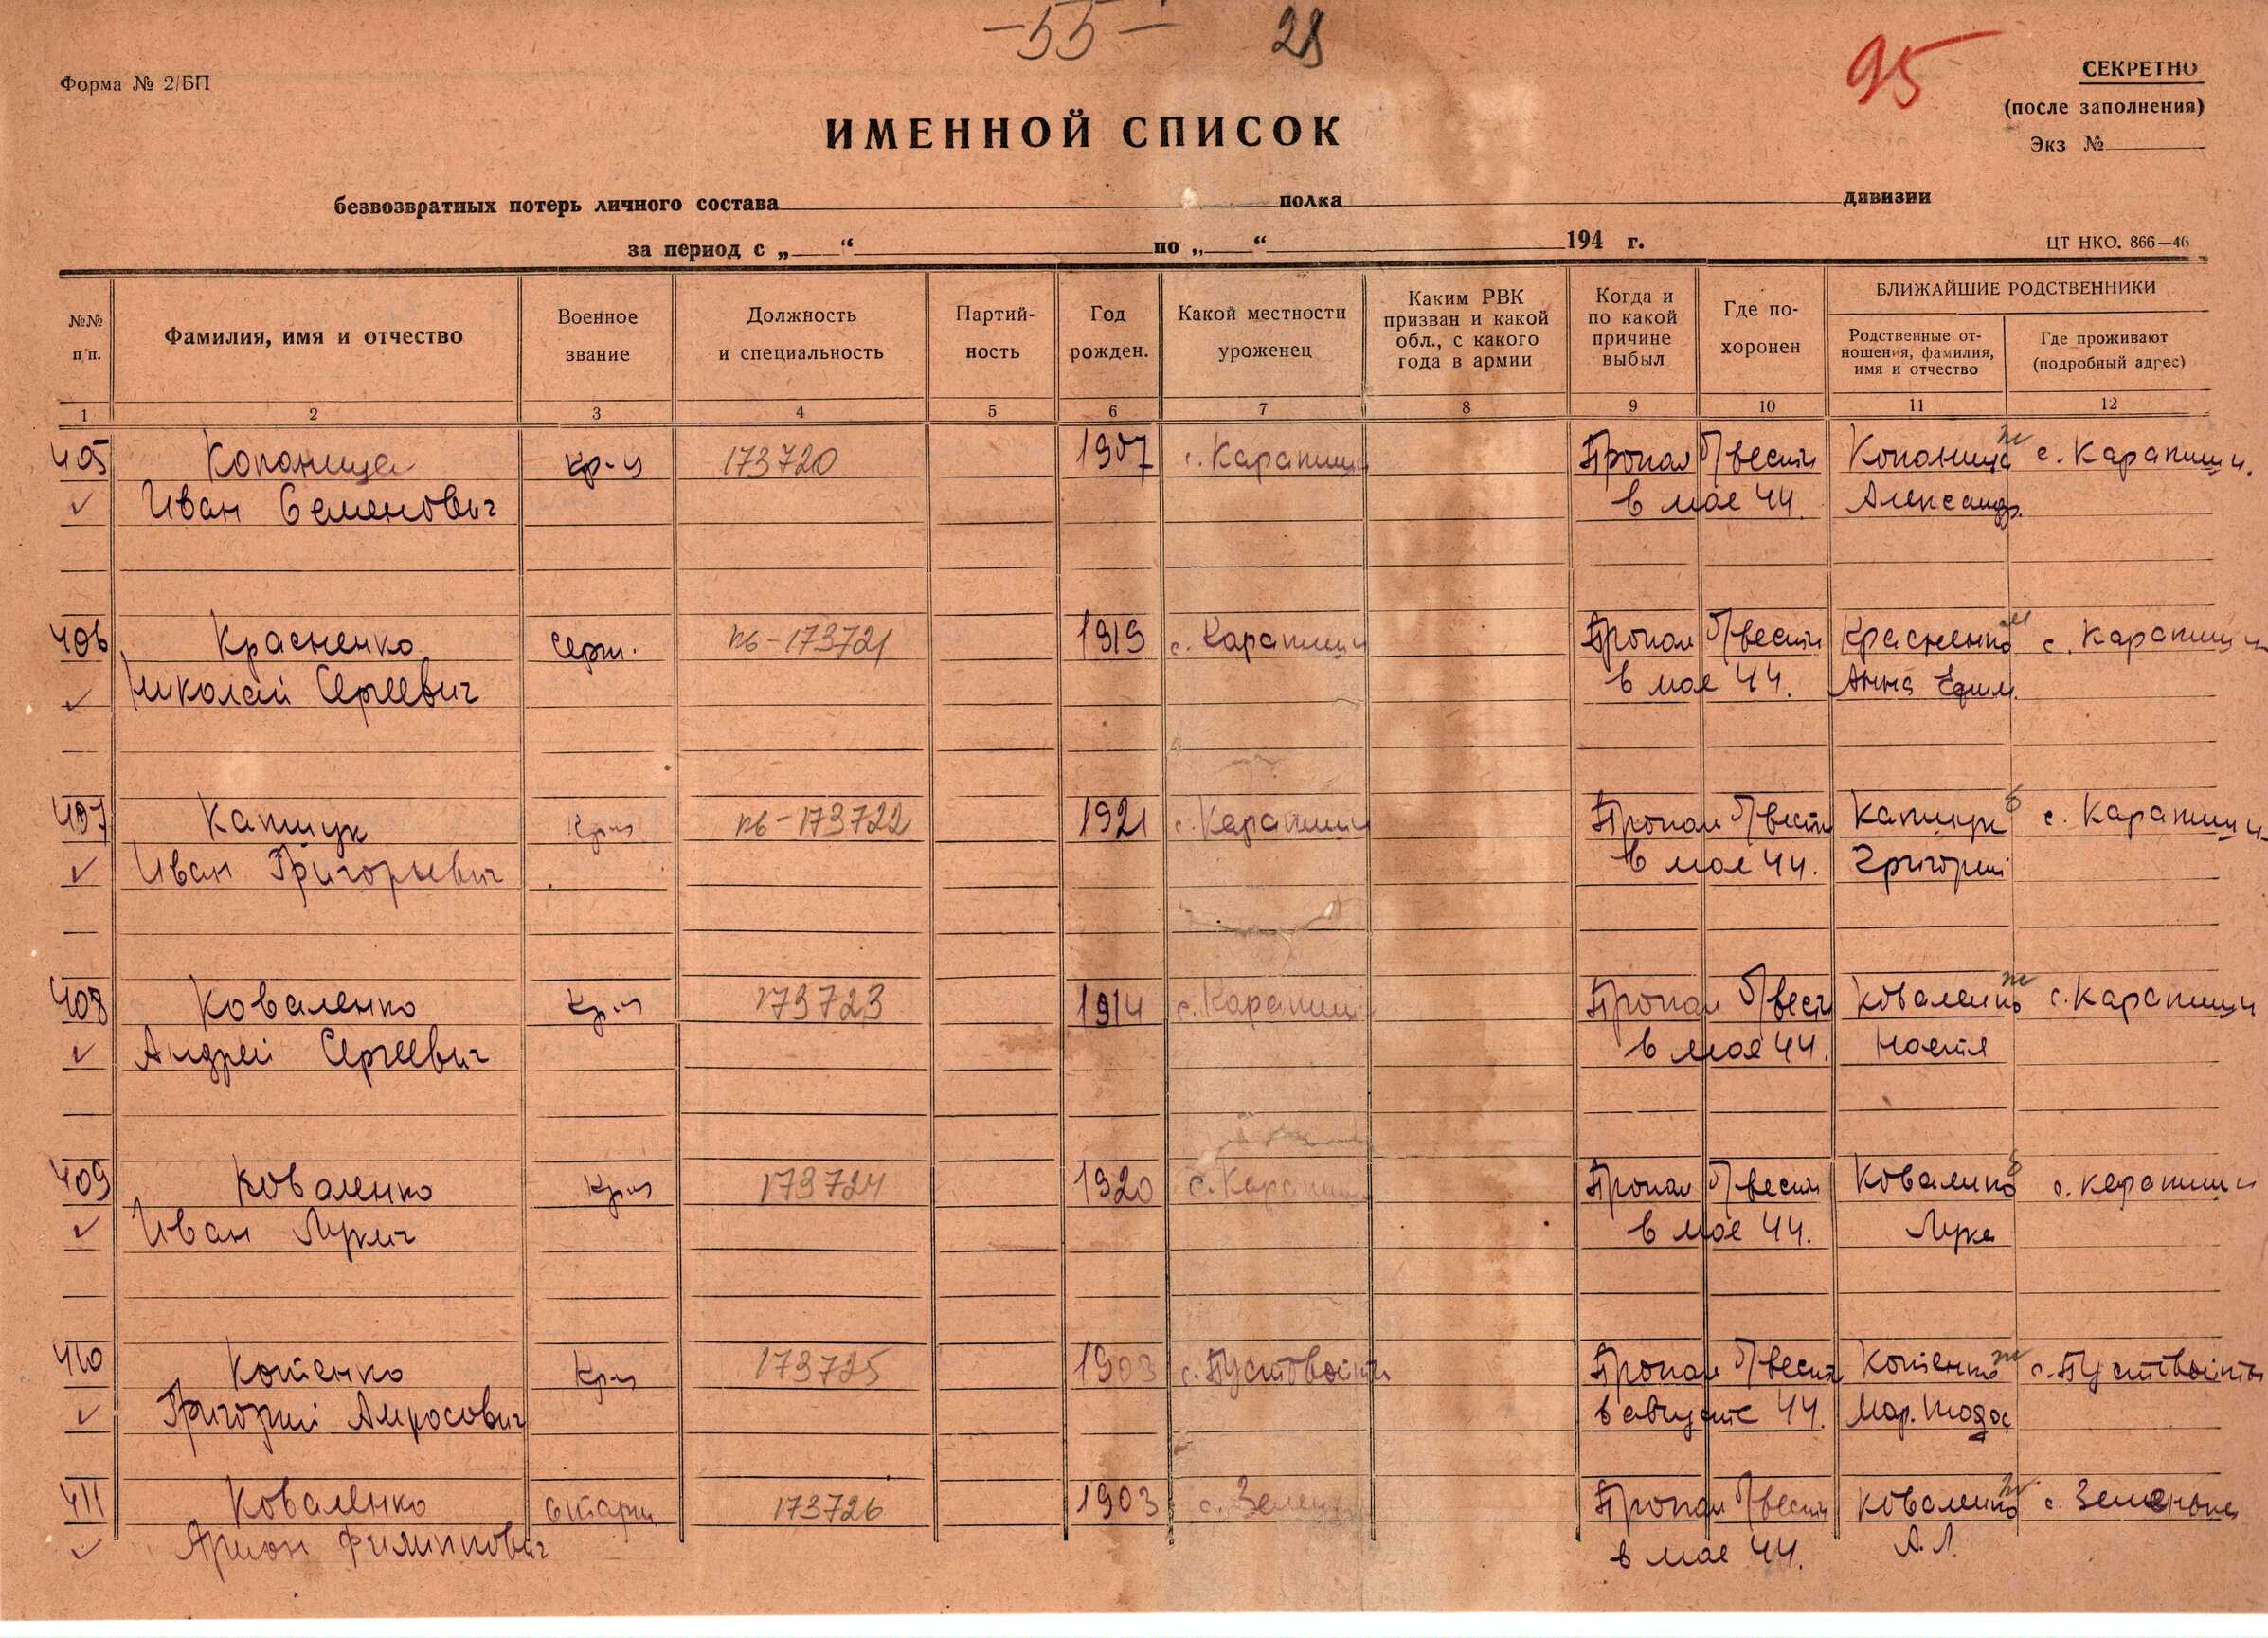 -55-
28
95
Форма № 2/БП
СЕКРЕТНО
(после заполнения)
Экз №
ИМЕННОЙ СПИСОК
безвозвратных потерь личного состава полка дивизии
за период с „ “ по „ “ 194 г.
ЦТ НКО. 866—46
№№ п/п.
Фамилия, имя и отчество
Военное звание
Должность и специальность
Партий-ность
Год рожден.
Какой местности уроженец
Каким РВК призван и какой обл., с какого года в армии
Когда и по какой причине выбыл
Где по-хоронен
БЛИЖАЙШИЕ РОДСТВЕННИКИ
Родственные от-ношения, фамилия, имя и отчество
Где проживают (подробный адрес)
1 2 3 4 5 6 7 8 9 10 11 12
405 Копаница кр-ц 173720 1907 с. Карапиши Пропал б/вести Копаница ж с. Карапиши.
Иван Семенович в мае 44. Александр.
406 Красненко Серж. пб-173721 1919 с. Карапиши Пропал б/вести Красненко м с. Карапиши
Николай Сергеевич в мае 44. Анна Ефим.
407 Капшук Кр-ц пб-173722 1921 с. Карапиши Пропал б/вести Капшук с. Карапиши
Иван Григорьевич в мае 44. Григорий
408 Коваленко Кр-ц 173723 1914 с. Карапиши Пропал б/вест Коваленко ж с. Карапиши
Андрей Сергеевич в мае 44. Настя
409 Коваленко Кр-ц 173724 1920 с. Карапиши Пропал б/вести Коваленко с. Карапиши
Иван Лукич в мае 44. Лука
410 Котенко Кр-ц 173725 1903 с. Пустовойты Пропал б/вести Котенко ж с. Пустовойты
Григорий Амросович в августе 44. Мар. Тодос
411 Коваленко 173726 1903 с. Зелен Пропал б/вести Коваленко ж с. Зеленьки
Арион Филиппович в мае 44. А.Л.